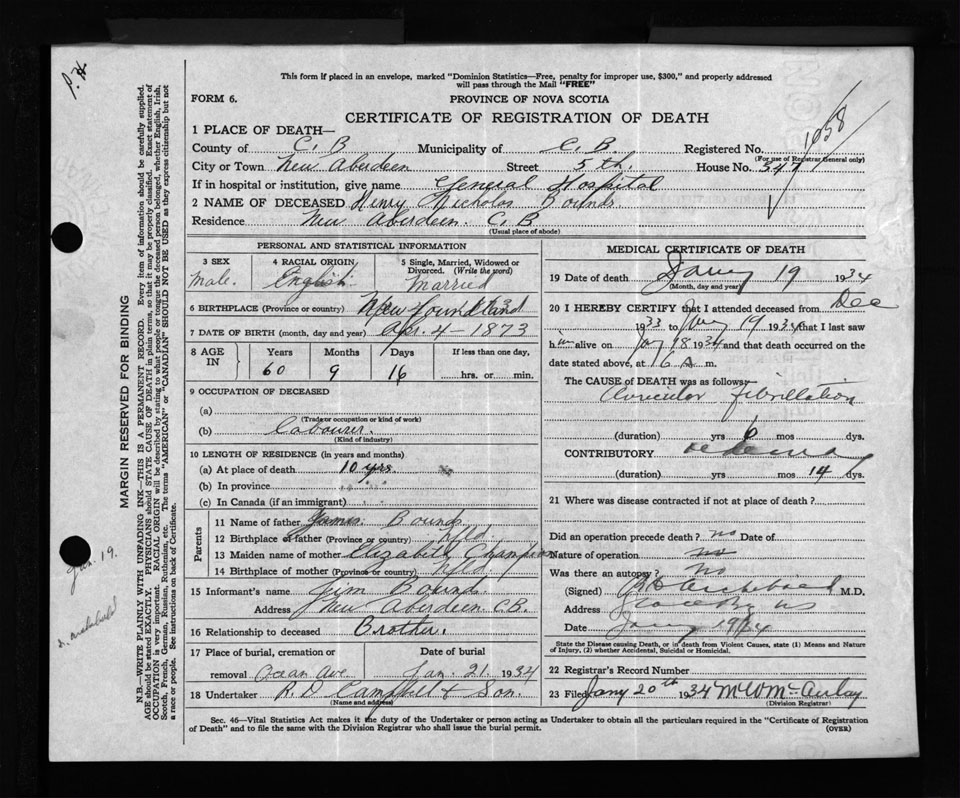 This form if placed in an envelope, marked "Dominion Statistics—Free, penalty for improper use, $300," and properly addressed
will pass through the Mail "FREE"
FORM 6.
PROVINCE OF NOVA SCOTIA
CERTIFICATE OF REGISTRATION OF DEATH
1 PLACE OF DEATH—
County of C. B Municipality of C. B. Registered No. 1058
(For use of Registrar General only)
City or Town New Aberdeen Street 5th. House No. 347
If in hospital or institution, give name General Hospital
2 NAME OF DECEASED Henry Nicholas Bounds.
Residence New Aberdeen. C. B
(Usual place of abode)
PERSONAL AND STATISTICAL INFORMATION
3 SEX
Male.
4 RACIAL ORIGIN
English
5 Single, Married, Widowed or
Divorced. (Write the word)
Married
6 BIRTHPLACE (Province or country) Newfoundland
7 DATE OF BIRTH (month, day and year) Apr. 4 — 1873
8 AGE IN
Years Months Days If less than one day,
60 9 16 hrs. or min.
9 OCCUPATION OF DECEASED
(a)
(Trade or occupation or kind of work)
(b) Labourer.
(Kind of industry)
10 LENGTH OF RESIDENCE (in years and months)
(a) At place of death 10 yrs.
(b) In province " "
(c) In Canada (if an immigrant)
Parents
11 Name of father James Bounds
12 Birthplace of father (Province or country) Nfld.
13 Maiden name of mother Elizabeth Champion
14 Birthplace of mother (Province or country) Nfld.
15 Informant's name Jim Bounds
Address New Aberdeen C.B.
16 Relationship to deceased Brother.
17 Place of burial, cremation or Date of burial
removal Ocean Ave. Jan. 21. 1934
18 Undertaker R. D. Campbell & Son.
(Name and address)
MEDICAL CERTIFICATE OF DEATH
19 Date of death Jany 19 1934
(Month, day and year)
20 I HEREBY CERTIFY that I attended deceased from Dec
1933 to Jany 19 1934 that I last saw
him alive on Jany 18 1934 and that death occurred on the
date stated above, at 6 a m.
The CAUSE OF DEATH was as follows:
Auricular fibrillation
(duration) yrs 6 mos dys.
CONTRIBUTORY oedema
(duration) yrs mos 14 dys.
21 Where was disease contracted if not at place of death?
Did an operation precede death? no Date of
Nature of operation no
Was there an autopsy? No
(Signed) Archibald M.D.
Address Glace Bay NS
Date Jany 19/34
State the Disease causing Death, or in death from Violent Causes, state (1) Means and Nature
of Injury, (2) whether Accidental, Suicidal or Homicidal.
22 Registrar's Record Number
23 Filed Jany 20th 1934 M W McAulay
(Division Registrar)
Sec. 46—Vital Statistics Act makes it the duty of the Undertaker or person acting as Undertaker to obtain all the particulars required in the "Certificate of Registration
of Death" and to file the same with the Division Registrar who shall issue the burial permit.
(OVER)
MARGIN RESERVED FOR BINDING
N.B.—WRITE PLAINLY WITH UNFADING INK—THIS IS A PERMANENT RECORD. Every item of information should be carefully supplied.
AGE should be stated EXACTLY. PHYSICIANS should STATE CAUSE OF DEATH in plain terms, so that it may be properly classified. Exact statement of
OCCUPATION is very important. RACIAL ORIGIN will be described by stating to what people or tongue the deceased person belonged, whether English, Irish,
Scotch, French, German, Russian, Ruthenian, etc. The terms "AMERICAN" or "CANADIAN" SHOULD NOT BE USED as they express citizenship but not
a race or people. See instructions on back of Certificate.
Jan. 19.